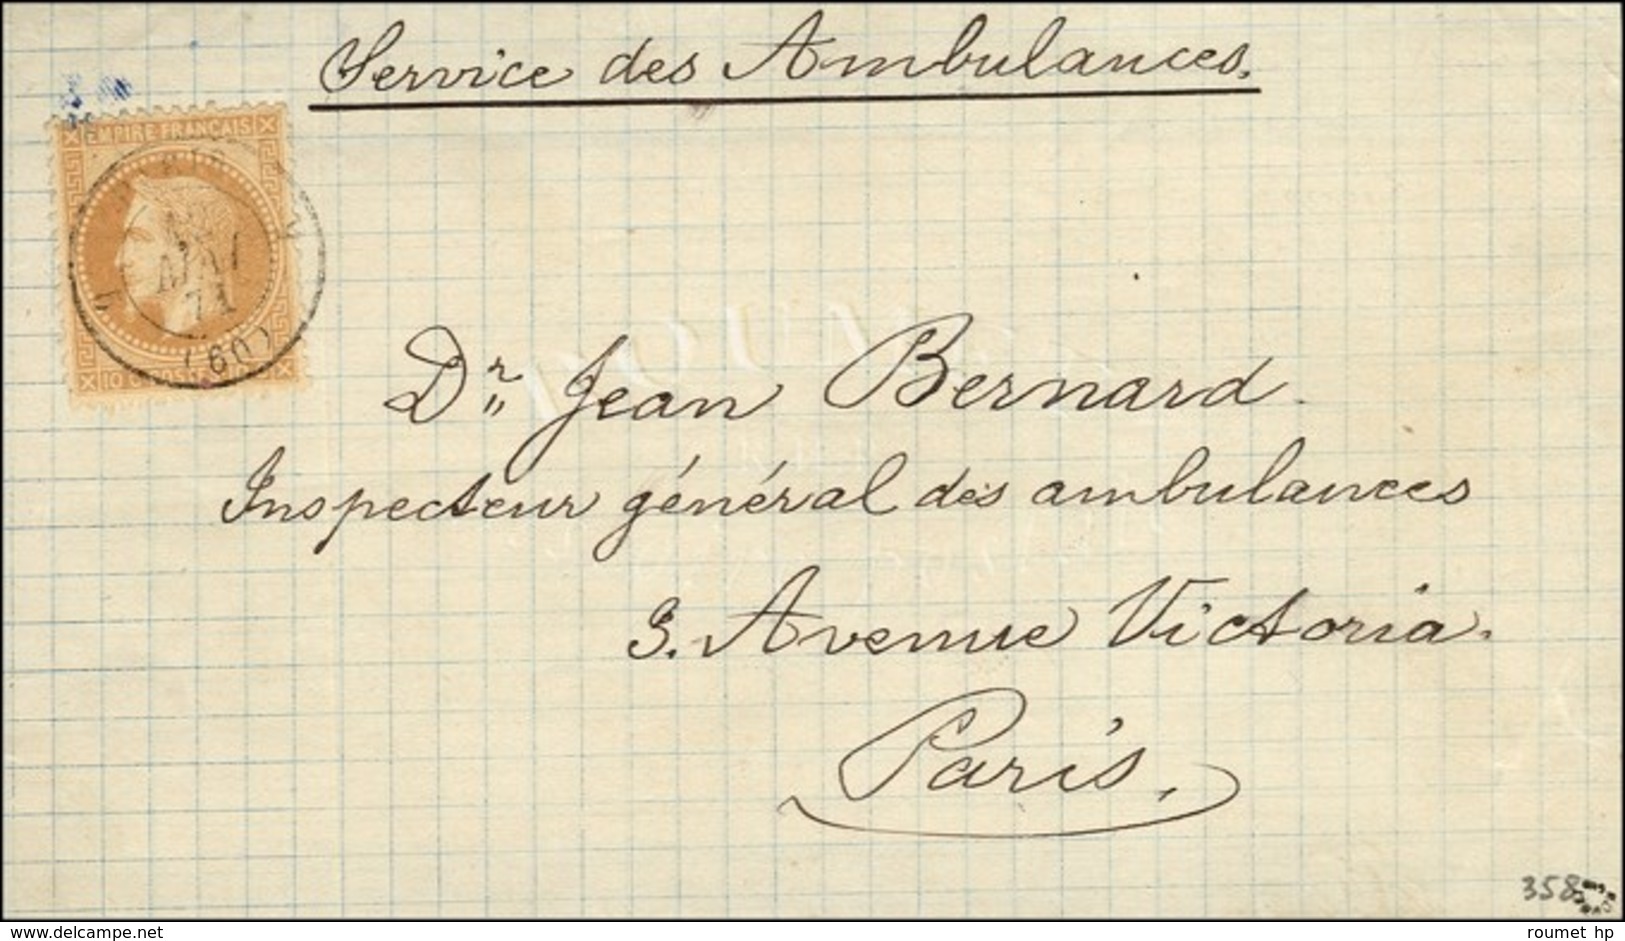 Service des Ambulances.
EMPIRE FRANÇAIS
MAI
71
(60)
Dr Jean Bernard.
Inspecteur général des ambulances
3. Avenue Victoria.
Paris.
358
delcampe.net
roumet hp